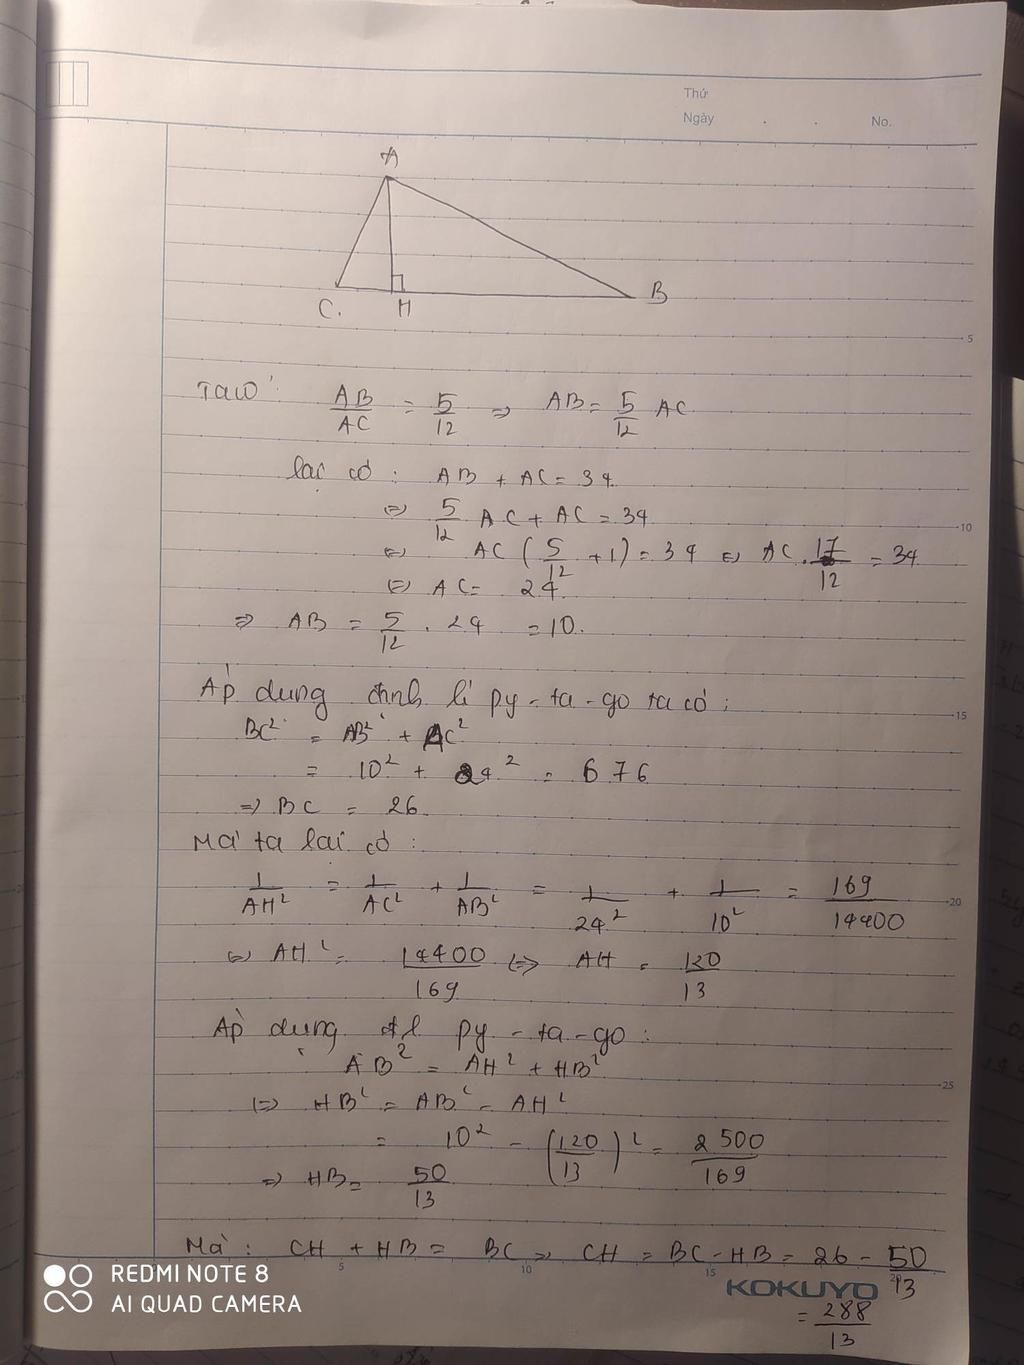 Thứ
Ngày . . No.
A
C. H B
5
Ta có: AB/AC = 5/12 => AB = 5/12 AC
lại có: AB + AC = 34
<=> 5/12 AC + AC = 34
10
<=> AC (5/12 + 1) = 34 <=> AC . 17/12 = 34
<=> AC = 24
=> AB = 5/12 . 24 = 10.
Áp dụng định lí py-ta-go ta có:
15
BC² = AB² + AC²
= 10² + 24² = 676
=> BC = 26
Mà ta lại có:
1/AH² = 1/AC² + 1/AB² = 1/24² + 1/10² = 169/14400
20
<=> AH² = 14400/169 <=> AH = 120/13
Áp dụng đl py-ta-go:
AB² = AH² + HB²
25
<=> HB² = AB² - AH²
= 10² - (120/13)² = 2500/169
=> HB = 50/13
Mà: CH + HB = BC => CH = BC - HB = 26 - 50/13
5 10 15 20
KOKUYO
= 288/13
REDMI NOTE 8
AI QUAD CAMERA